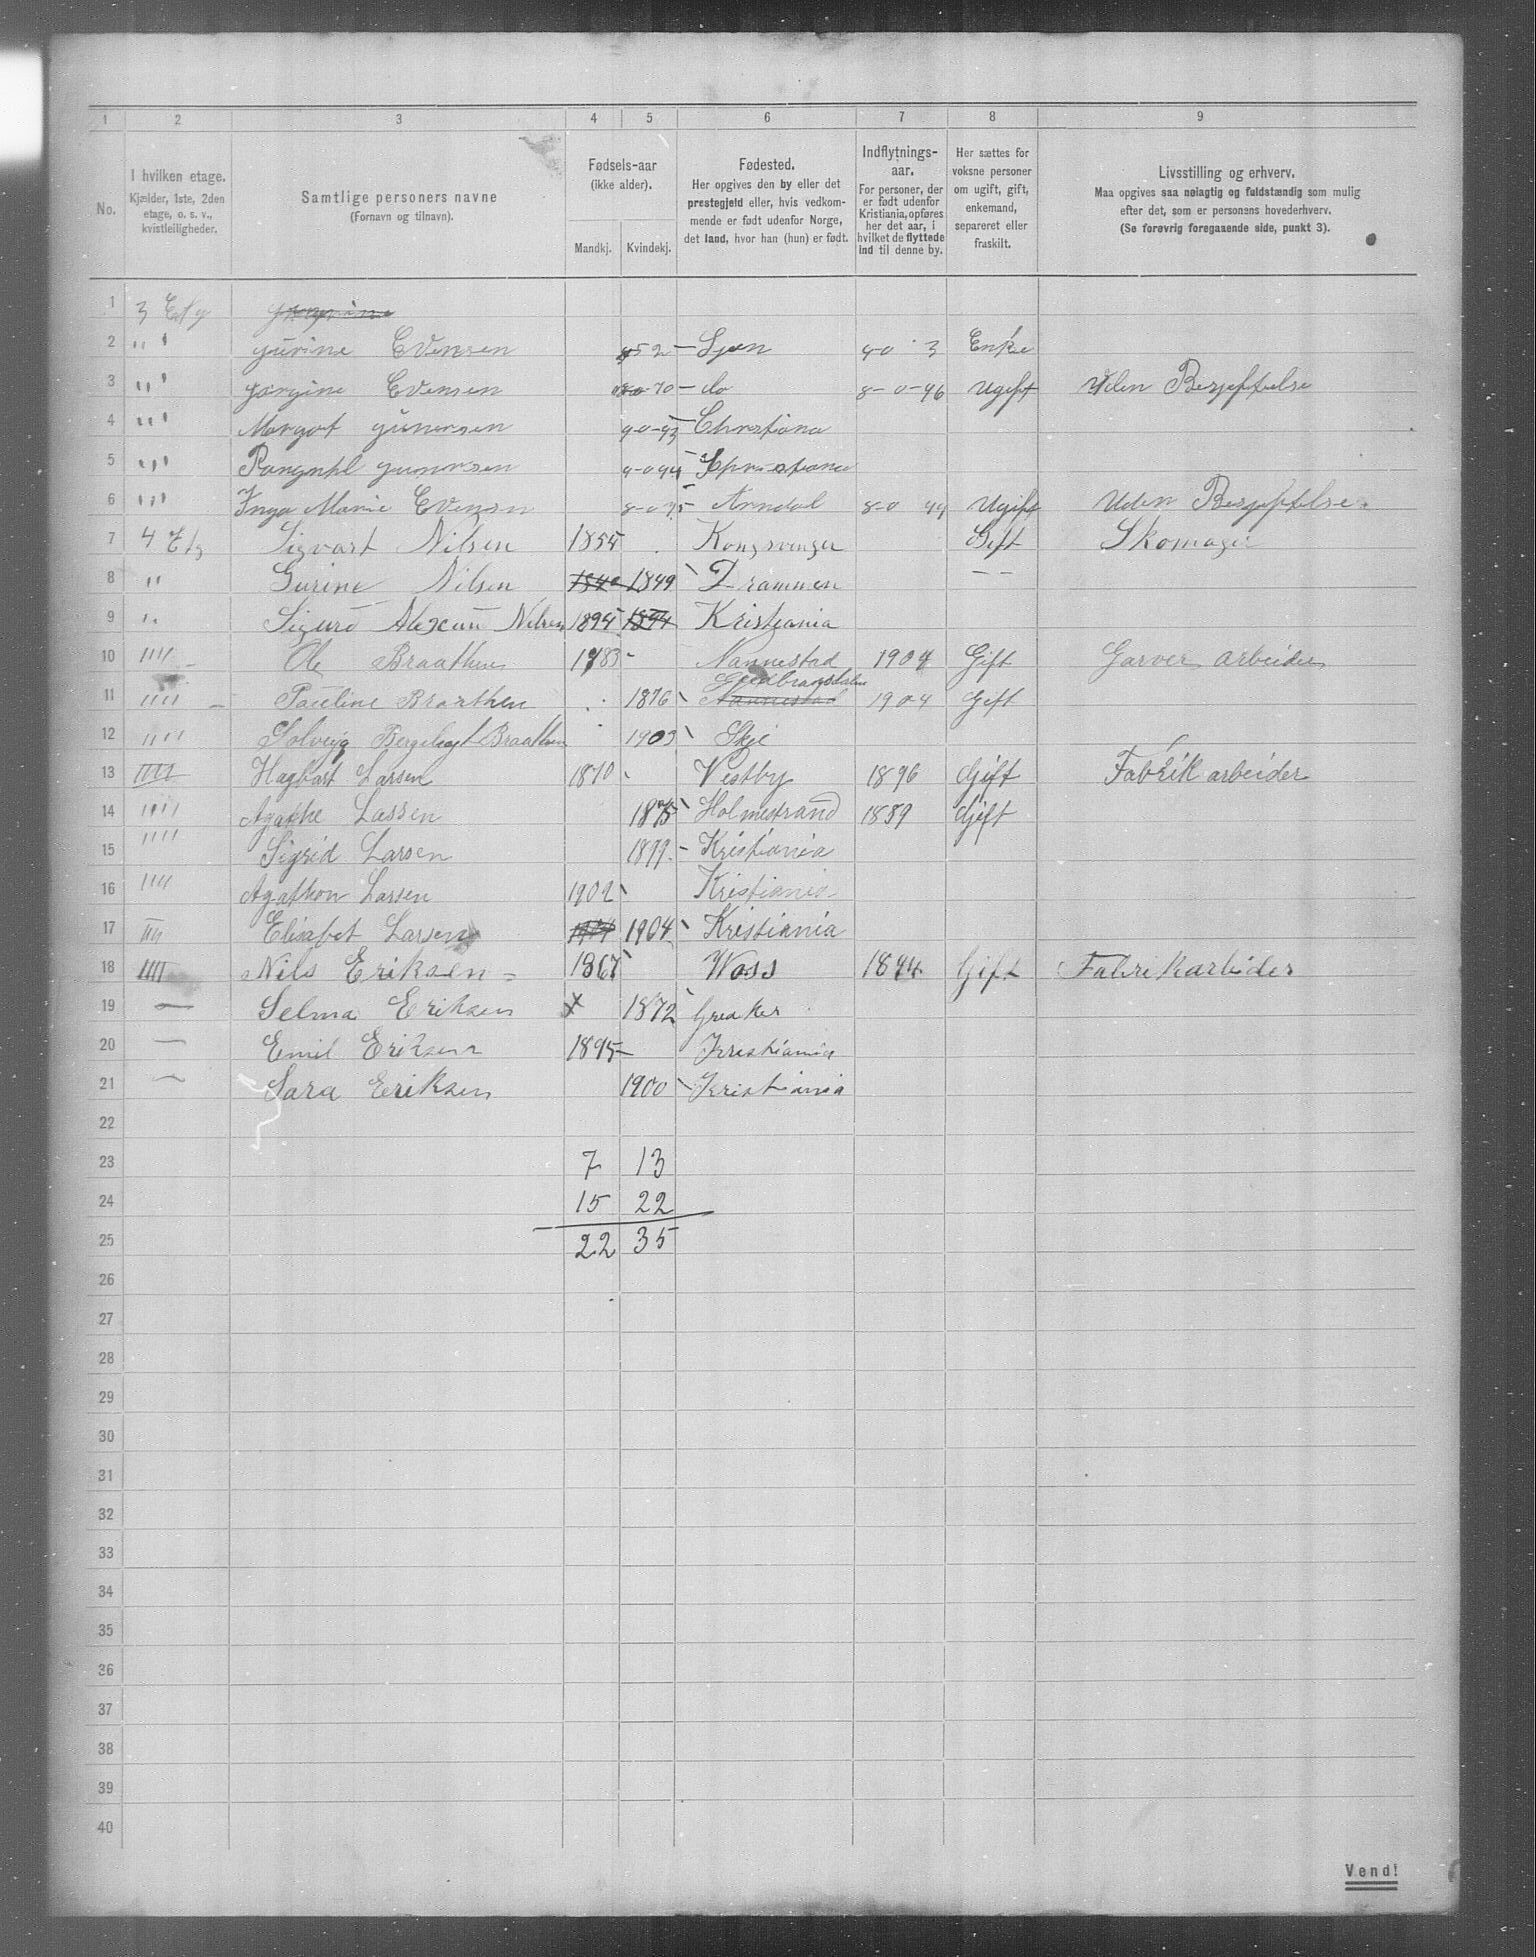 1 2 3 4 5 6 7 8 9
No.
I hvilken etage.
Kjælder, 1ste, 2den
etage, o. s. v.,
kvistleiligheder.
Samtlige personers navne
(Fornavn og tilnavn).
Fødsels-aar
(ikke alder).
Mandkj. Kvindekj.
Fødested.
Her opgives den by eller det
prestegjeld eller, hvis vedkom-
mende er født udenfor Norge,
det land, hvor han (hun) er født.
Indflytnings-
aar.
For personer, der
er født udenfor
Kristiania, opføres
her det aar, i
hvilket de flyttede
ind til denne by.
Her sættes for
voksne personer
om ugift, gift,
enkemand,
separeret eller
fraskilt.
Livsstilling og erhverv.
Maa opgives saa nøiagtig og fuldstændig som mulig
efter det, som er personens hovederhverv.
(Se forøvrig foregaaende side, punkt 3).
1 3 Etg
2 " " gurine Evensen 52 — 90 3 Enke
3 " " jørgine Evensen 70 — do 8-0-96 ugift Uden Besjeftelse
4 " " Margot gunersen 9-0-93 Christiana
5 " " gunersen 9-094
6 " " Inga Marie Evensen Arndal 8-0 99 Ugift Uden Besjeftelse.
7 4 Etg Sigvart Nilsen 1854 Kongsvinger Gift Skomager
8 " Gurine Nilsen 1840 1849 Drammen — —
9 " Sigurd Nilsen 1894 1894 Kristiania
10 " " Ole Braathen 1883 - Nannestad 1904 Gift Garver arbeider
11 " " — Pauline Braathen 1876 Gudbrandsdalen Nannestad 1904 Gift
12 " " Solveig Braathen 1903 Skje
13 " " Hagbart Larsen 1870 Vestby 1896 Gift Fabrik arbeider
14 " " Agathe Lassen 1875 Holmestrand 1889 Gift
15 " " Sigrid Larsen 1899 - Kristiania
16 " " Agathon Larsen 1902 Kristiania
17 " " Elisabet Larsen 1904 Kristiania
18 " " Nils Eriksen - 1867 Woss 1894 Gift Fabrikarbeider
19 — Selma Eriksen 1872 Greaker
20 — Emil Eriksen 1895 — Kristiania
21 — Sara Eriksen 1900 Kristiania
22
23 7 13
24 15 22
25 22 35
26
27
28
29
30
31
32
33
34
35
36
37
38
39
40
Vend!